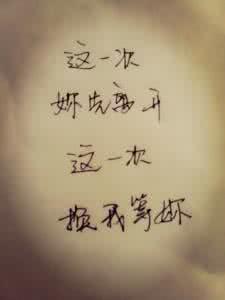 这一次
妳先离开
这一次
换我等妳